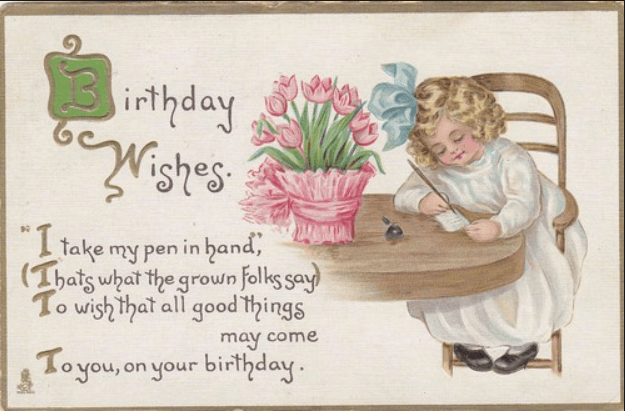 Birthday
Wishes.
"I take my pen in hand",
(Thats what the grown folks say)
To wish that all good things
may come
To you, on your birthday.